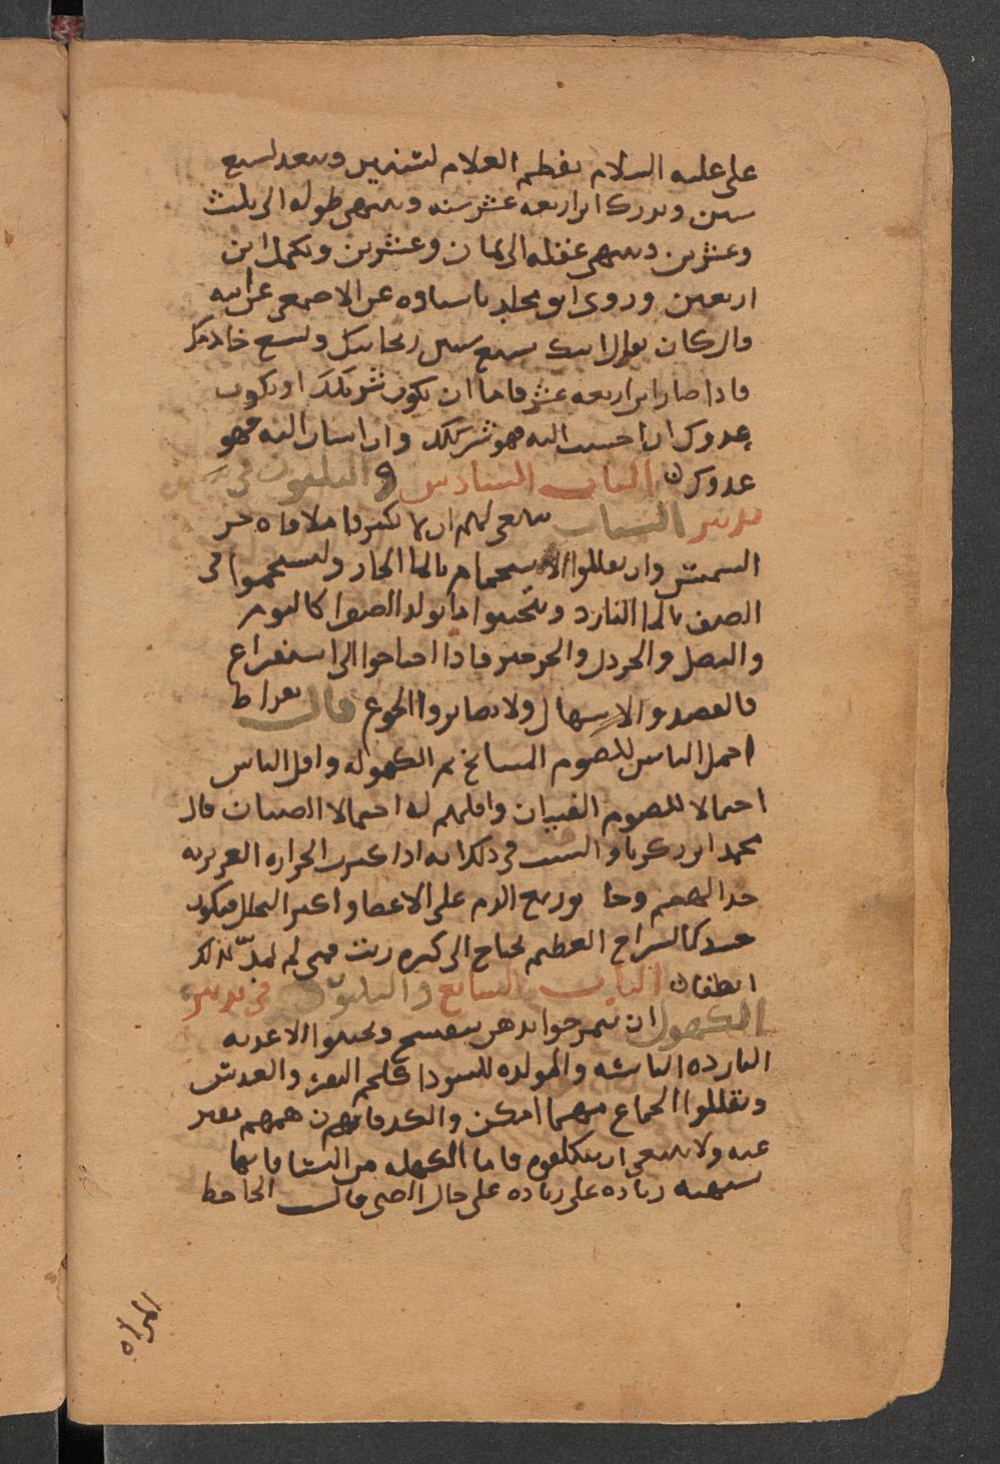 علي عليه السلام يفطم الغلام لسنتين ويعد لسبع
سنين ويدرك ابن اربعه عشر سنه وينتهي طوله الي ثلث
وعشرين وينتهي عقله الي ثمان وعشرين ويكمل ابن
اربعين وروي ابو مجلد باسناده عن الاصمعي عن ابيه
قال كان يقال ابنك سبع سنين ريحانتك وتسع خادمك
فاذا صار ابن اربعه عشر فاما ان يكون شريكك او يكون
عدوك ان احسنت اليه فهو شريكك وان اسات اليه فهو
عدوك الباب السادس والثلثون في
تدبير الشباب ينبغي لهم ان لا يكثروا ملاقاه حر
الشمس وان يقللوا الاستحمام بالماء الحار وليستحموا في
الصيف بالماء البارد ويتجنبوا ما يولد الصفرا كالثوم
والبصل والخردل والجرجير فاذا احتاجوا الي استفراغ
فالفصد والاسهال ولا يصابروا الجوع قال بقراط
احمل الناس للصوم المشايخ ثم الكهوله واقل الناس
احتمالا للصوم الفتيان واقلهم له احتمالا الصبيان قال
محمد ابن زكريا والسبب في ذلك انه اذا كثرت الحراره الغريزيه
جدا الهضم وجا توزيع الدم علي الاعضا واكثر التحلل فيكون
حينئذ كالسراج العظيم يحتاج الي كثره زيت فمتي لم يمد بذلك
انطفا الباب السابع والثلثون في تدبير
الكهول ان يمرخوا بدهن بنفسج ويجتنبوا الاغذيه
البارده اليابسه والمولده للسودا كلحم البقر والعدس
ويقللوا الجماع مهما امكن والكد فانهم ن هممهم تفتر
عنه ولا ينبغي ان يتكلفوه فاما الكهله من النسا فانها
شهيه زياده علي زياده علي حال الصبي قال الجاحظ
المراه